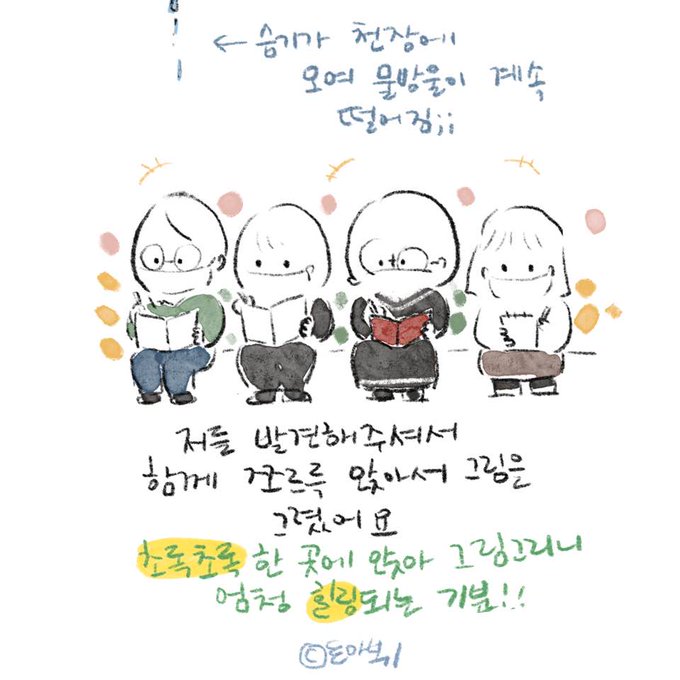 ← 습기가 천장에
모여 물방울이 계속
떨어짐;;
저들 발견해주셔서
함께 쪼르륵 앉아서 그림을
그렸어요
초록초록 한 곳에 앉아 그림그리니
엄청 힐링되는 기분!!